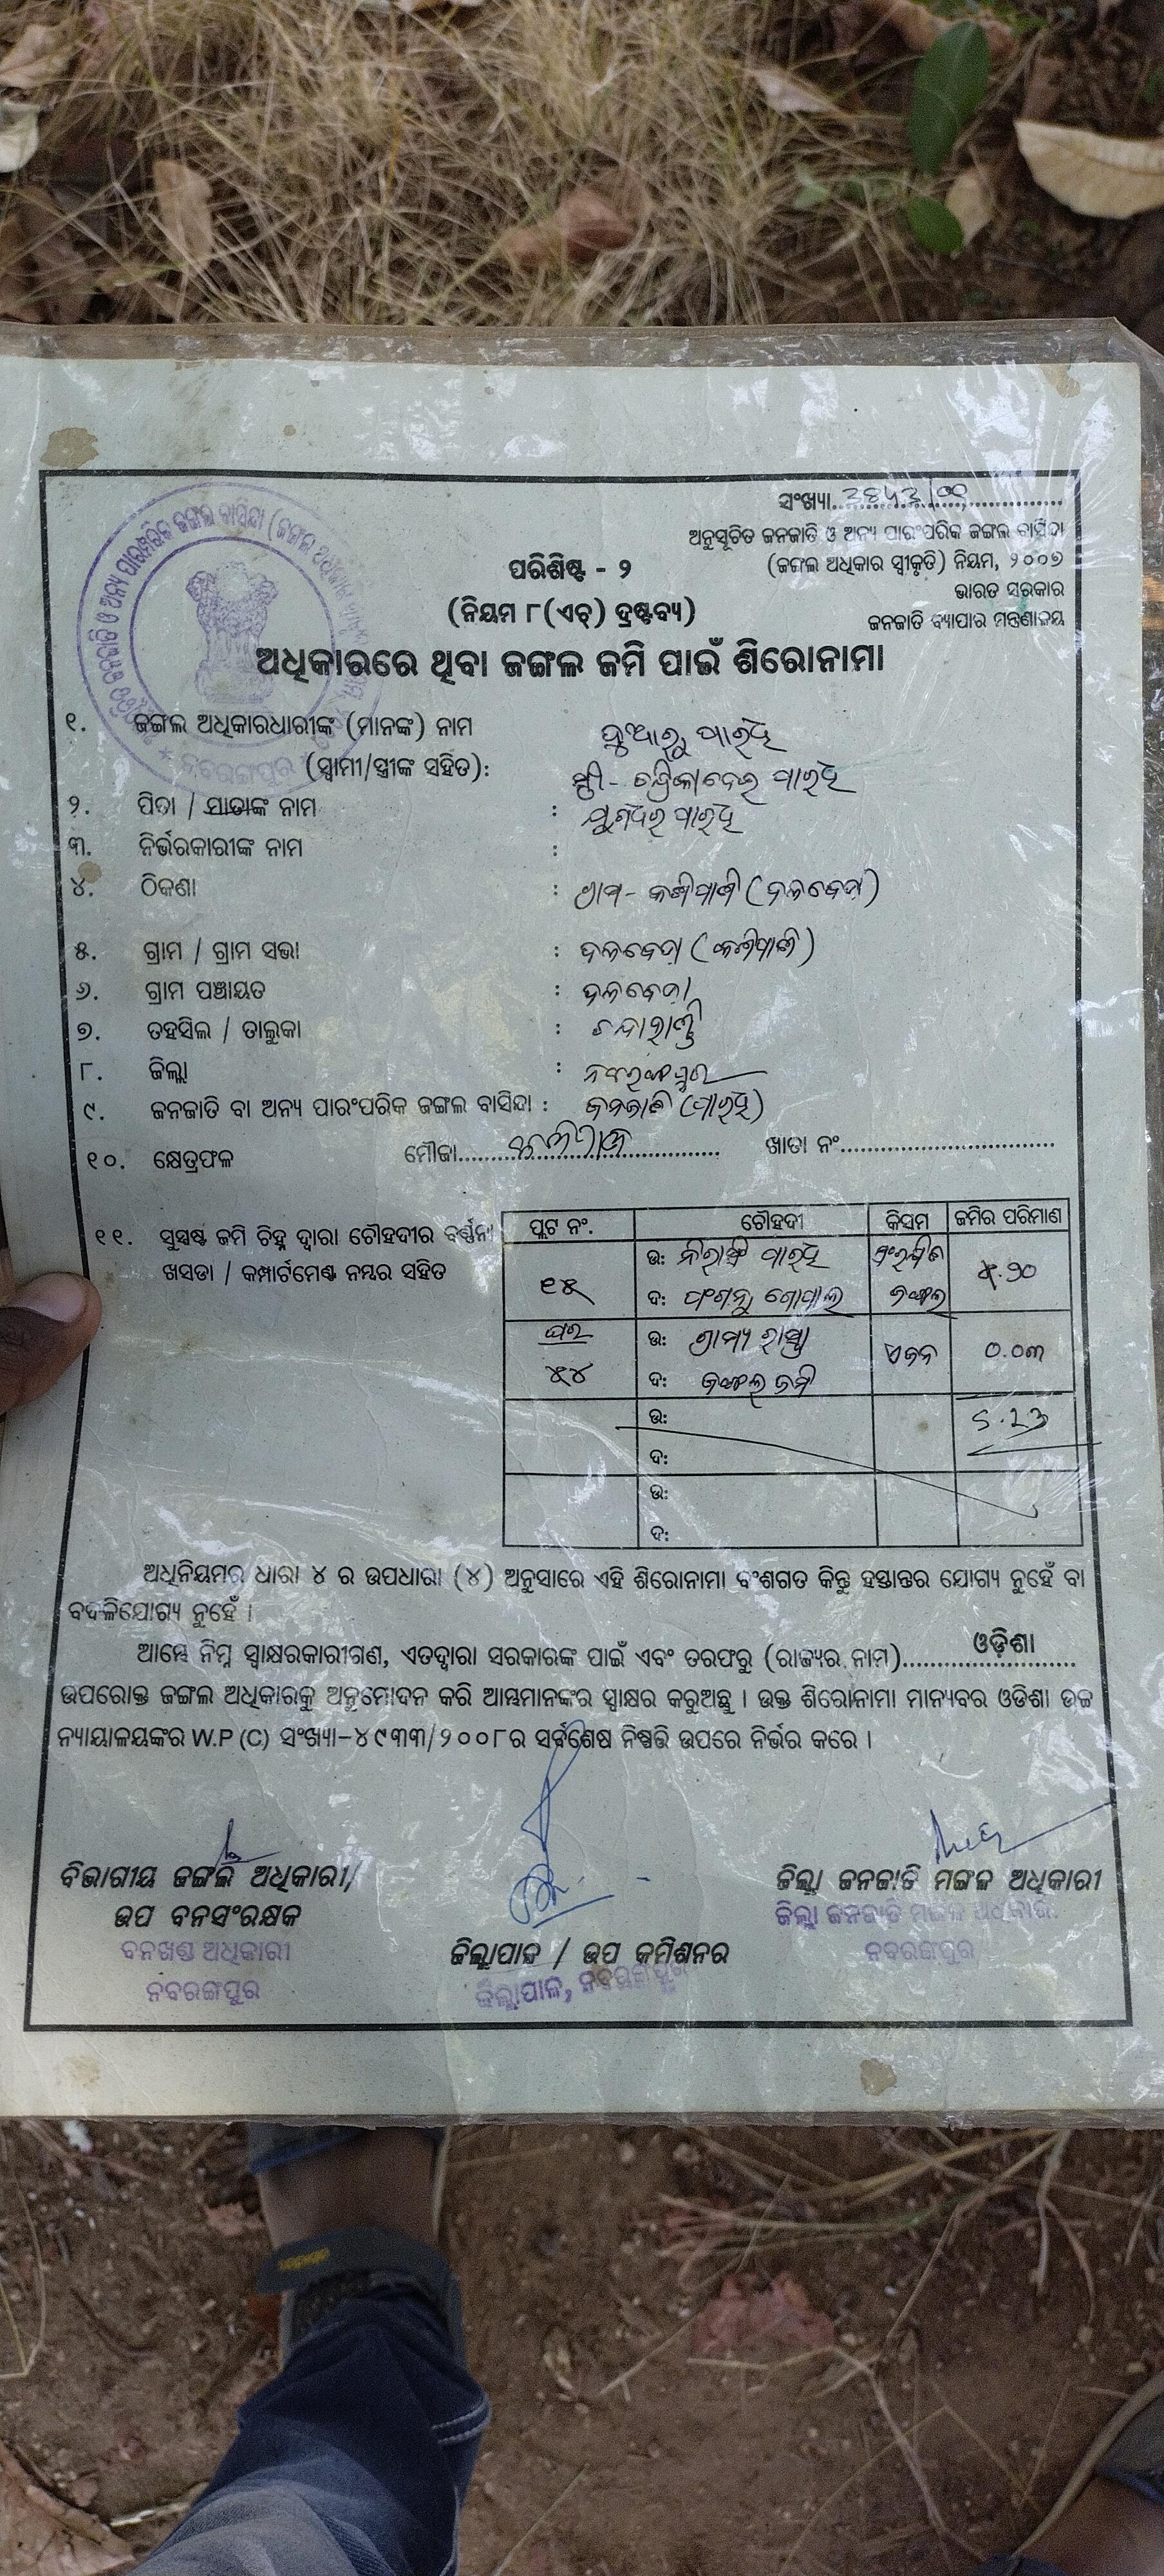 ସଂଖ୍ୟା
ଅନୁସୂଚିତ ଜନଜାତି ଓ ଅନ୍ୟ ପାରଂପରିକ ଜଙ୍ଗଲ ବାସିନ୍ଦା
(ଜଙ୍ଗଲ ଅଧିକାର ସ୍ୱୀକୃତି) ନିୟମ, ୨୦୦୭
ଭାରତ ସରକାର
ଜନଜାତି ବ୍ୟାପାର ମନ୍ତ୍ରଣାଳୟ
ପରିଶିଷ୍ଟ - ୨
(ନିୟମ ୮(ଏଚ୍) ଦ୍ରଷ୍ଟବ୍ୟ)
ଅଧିକାରରେ ଥିବା ଜଙ୍ଗଲ ଜମି ପାଇଁ ଶିରୋନାମା
୧. ଜଙ୍ଗଲ ଅଧିକାରଧାରୀଙ୍କ (ମାନଙ୍କ) ନାମ
(ସ୍ୱାମୀ/ସ୍ତ୍ରୀଙ୍କ ସହିତ):
୨. ପିତା / ମାତାଙ୍କ ନାମ :
୩. ନିର୍ଭରକାରୀଙ୍କ ନାମ :
୪. ଠିକଣା : ଗ୍ରାମ-
୫. ଗ୍ରାମ / ଗ୍ରାମ ସଭା : ଦଳବେଡ଼ା
୬. ଗ୍ରାମ ପଞ୍ଚାୟତ : ଦଳବେଡ଼ା
୭. ତହସିଲ / ତାଲୁକା : ଚନ୍ଦାହାଣ୍ଡି
୮. ଜିଲ୍ଲା : ନବରଙ୍ଗପୁର
୯. ଜନଜାତି ବା ଅନ୍ୟ ପାରଂପରିକ ଜଙ୍ଗଲ ବାସିନ୍ଦା : ଜନଜାତି
୧୦. କ୍ଷେତ୍ରଫଳ ମୌଜା ଖାତା ନଂ
୧୧. ସୁସ୍ପଷ୍ଟ ଜମି ଚିହ୍ନ ଦ୍ୱାରା ଚୌହଦୀର ବର୍ଣ୍ଣନା
ଖସଡା / କମ୍ପାର୍ଟମେଣ୍ଟ ନମ୍ବର ସହିତ
ପ୍ଲଟ ନଂ. ଚୌହଦୀ କିସମ ଜମିର ପରିମାଣ
ଉ: ସଂରକ୍ଷିତ
୧୫ ଦ: ଜଙ୍ଗଲ ୫.୨୦
ଘର ଉ: ଗ୍ରାମ୍ୟ ରାସ୍ତା
୫୪ ଦ: ଜଙ୍ଗଲ ଜମି ୦.୦୩
ଉ: 5.23
ଦ:
ଉ:
ଦ:
ଅଧିନିୟମର ଧାରା ୪ ର ଉପଧାରା (୪) ଅନୁସାରେ ଏହି ଶିରୋନାମା ବଂଶଗତ କିନ୍ତୁ ହସ୍ତାନ୍ତର ଯୋଗ୍ୟ ନୁହେଁ ବା
ବଦଳିଯୋଗ୍ୟ ନୁହେଁ ।
ଆମ୍ଭେ ନିମ୍ନ ସ୍ୱାକ୍ଷରକାରୀଗଣ, ଏତଦ୍ୱାରା ସରକାରଙ୍କ ପାଇଁ ଏବଂ ତରଫରୁ (ରାଜ୍ୟର ନାମ) ଓଡ଼ିଶା
ଉପରୋକ୍ତ ଜଙ୍ଗଲ ଅଧିକାରକୁ ଅନୁମୋଦନ କରି ଆମ୍ଭମାନଙ୍କର ସ୍ୱାକ୍ଷର କରୁଅଛୁ । ଉକ୍ତ ଶିରୋନାମା ମାନ୍ୟବର ଓଡିଶା ଉଚ୍ଚ
ନ୍ୟାୟାଳୟଙ୍କର W.P (C) ସଂଖ୍ୟା-୪୯୩୩/୨୦୦୮ର ସର୍ବଶେଷ ନିଷ୍ପତ୍ତି ଉପରେ ନିର୍ଭର କରେ ।
ବିଭାଗୀୟ ଜଙ୍ଗଲ ଅଧିକାରୀ/
ଉପ ବନସଂରକ୍ଷକ
ବନଖଣ୍ଡ ଅଧିକାରୀ
ନବରଙ୍ଗପୁର
ଜିଲ୍ଲାପାଳ / ଉପ କମିଶନର
ଜିଲ୍ଲାପାଳ, ନବରଙ୍ଗପୁର
ଜିଲ୍ଲା ଜନଜାତି ମଙ୍ଗଳ ଅଧିକାରୀ
ଜିଲ୍ଲା ଜନଜାତି ମଙ୍ଗଳ ଅଧିକାରୀ
ନବରଙ୍ଗପୁର